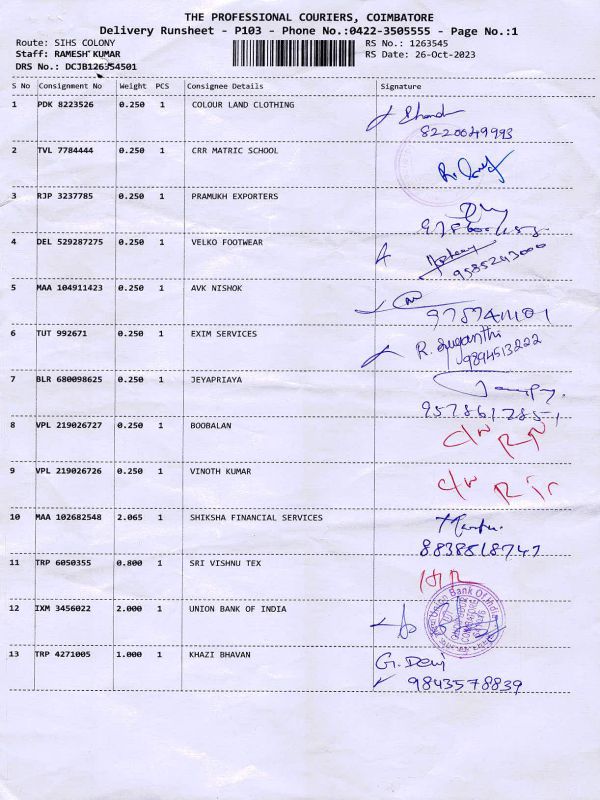 THE PROFESSIONAL COURIERS, COIMBATORE
Delivery Runsheet - P103 - Phone No.:0422-3505555 - Page No.:1
Route: SIHS COLONY
RS No.: 1263545
Staff: RAMESH KUMAR
RS Date: 26-Oct-2023
DRS No.: DCJB126354501
S No Consignment No Weight PCS Consignee Details Signature
1 PDK 8223526 0.250 1 COLOUR LAND CLOTHING
8220049993
2 TVL 7784444 0.250 1 CRR MATRIC SCHOOL
3 RJP 3237785 0.250 1 PRAMUKH EXPORTERS
4 DEL 529287275 0.250 1 VELKO FOOTWEAR
9585243000
5 MAA 104911423 0.250 1 AVK NISHOK
6 TUT 992671 0.250 1 EXIM SERVICES
R. Suganthi
9894513222
7 BLR 680098625 0.250 1 JEYAPRIAYA
9578617851
8 VPL 219026727 0.250 1 BOOBALAN
c/w
9 VPL 219026726 0.250 1 VINOTH KUMAR
c/w
10 MAA 102682548 2.065 1 SHIKSHA FINANCIAL SERVICES
8838818747
11 TRP 6050355 0.800 1 SRI VISHNU TEX
12 IXM 3456022 2.000 1 UNION BANK OF INDIA
Union Bank Of India
13 TRP 4271005 1.000 1 KHAZI BHAVAN
G. Devi
9843578839